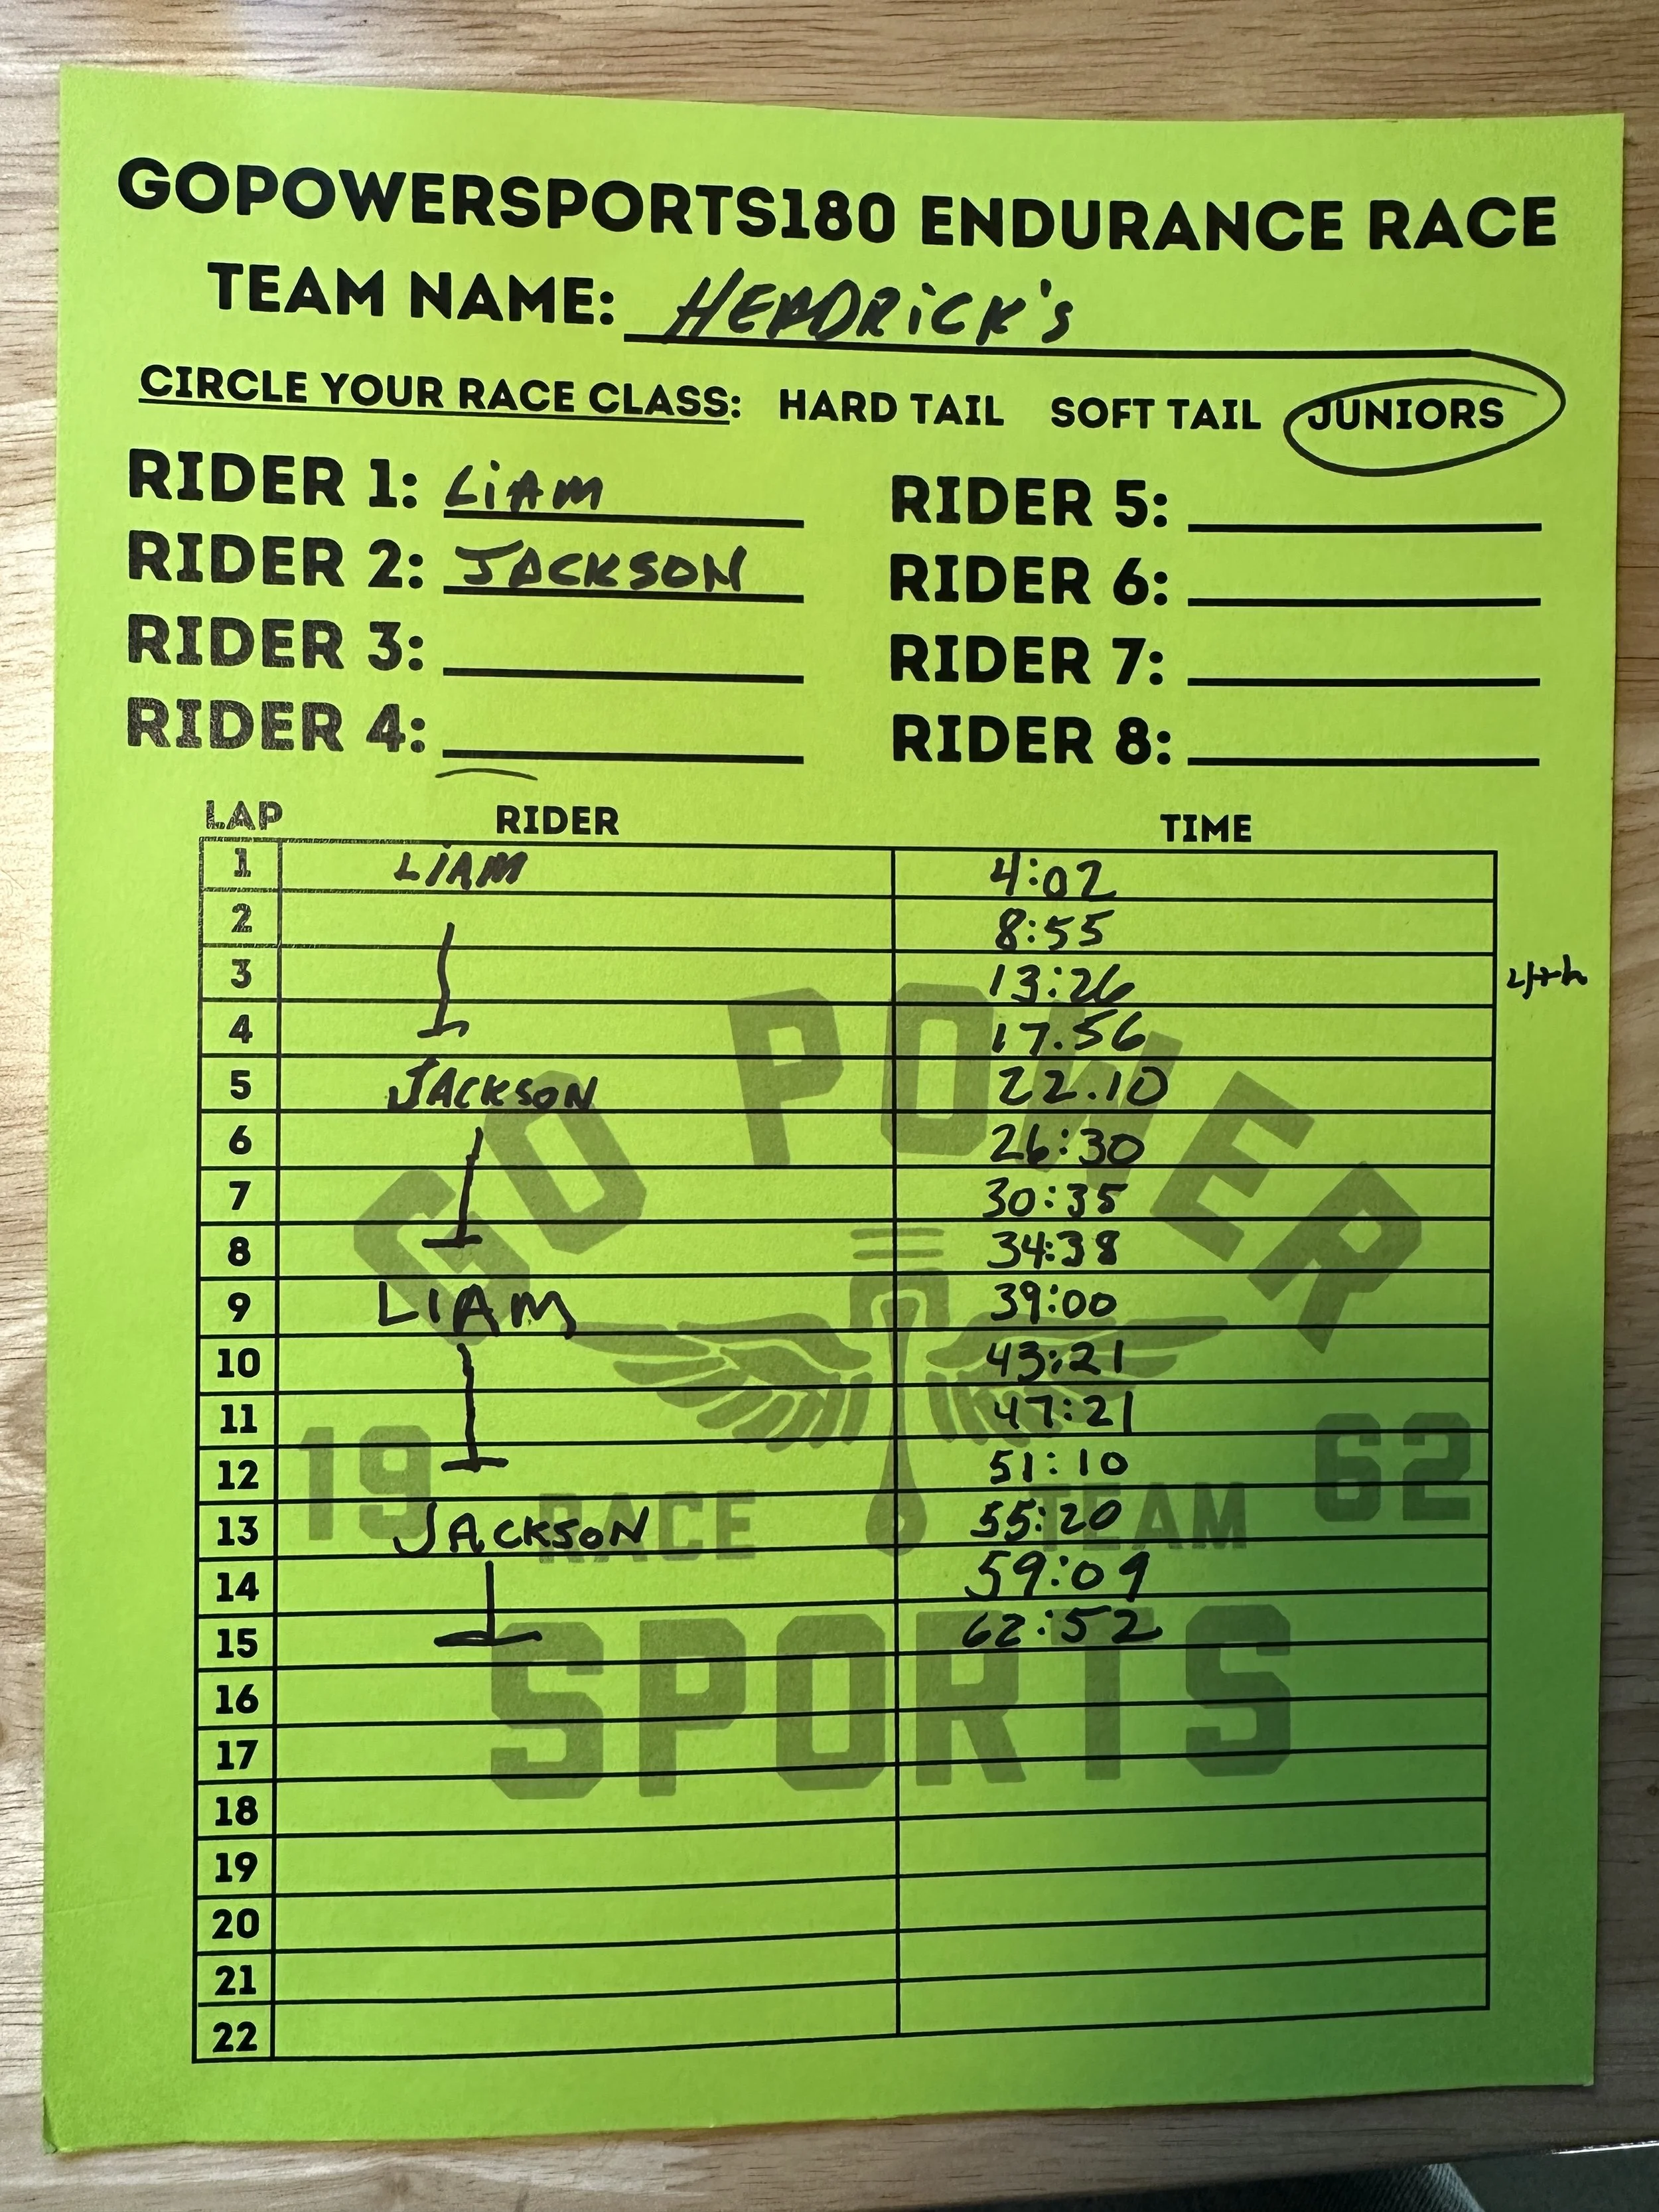 GOPOWERSPORTS180 ENDURANCE RACE
TEAM NAME: HENDRICK's
CIRCLE YOUR RACE CLASS: HARD TAIL SOFT TAIL JUNIORS
RIDER 1: LiAM RIDER 5:
RIDER 2: JACKSON RIDER 6:
RIDER 3: RIDER 7:
RIDER 4: RIDER 8:
LAP RIDER TIME
1 LiAM 4:02
2 8:55
3 13:26
4 17.56
5 JACKSON 22.10
6 26:30
7 30:35
8 34:38
9 LIAM 39:00
10 43:21
11 47:21
12 51:10
13 JACKSON 55:20
14 59:09
15 62:52
16
17
18
19
20
21
22
GO POWER
19 RACE TEAM 62
SPORTS